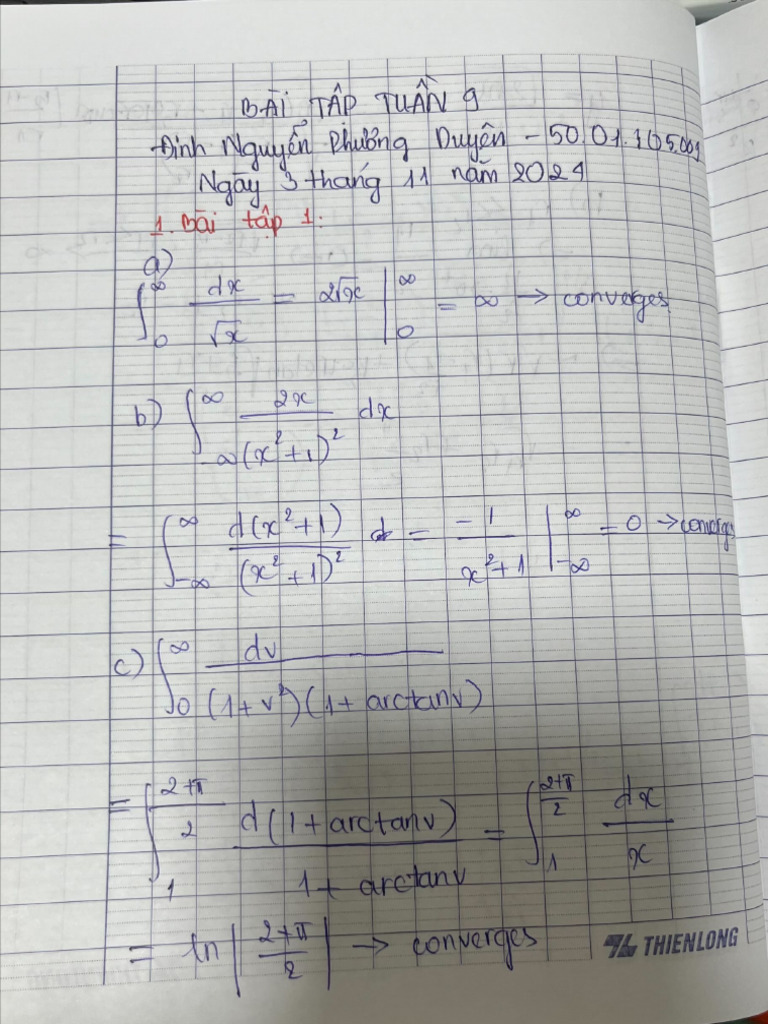 BÀI TẬP TUẦN 9
Đinh Nguyễn Phương Duyên - 50.01.105.009
Ngày 3 tháng 11 năm 2024
1. Bài tập 1:
a)
∫_0^∞ dx/√x = 2√x |_0^∞ = ∞ → converges
b) ∫_{-∞}^∞ 2x/(x²+1)² dx
= ∫_{-∞}^∞ d(x²+1)/(x²+1)² = -1/(x²+1) |_{-∞}^∞ = 0 → converges
c) ∫_0^∞ dv/((1+v²)(1+arctanv))
= ∫_1^{(2+π)/2} d(1+arctanv)/(1+arctanv) = ∫_1^{(2+π)/2} dx/x
= ln|(2+π)/2| → converges
THIENLONG